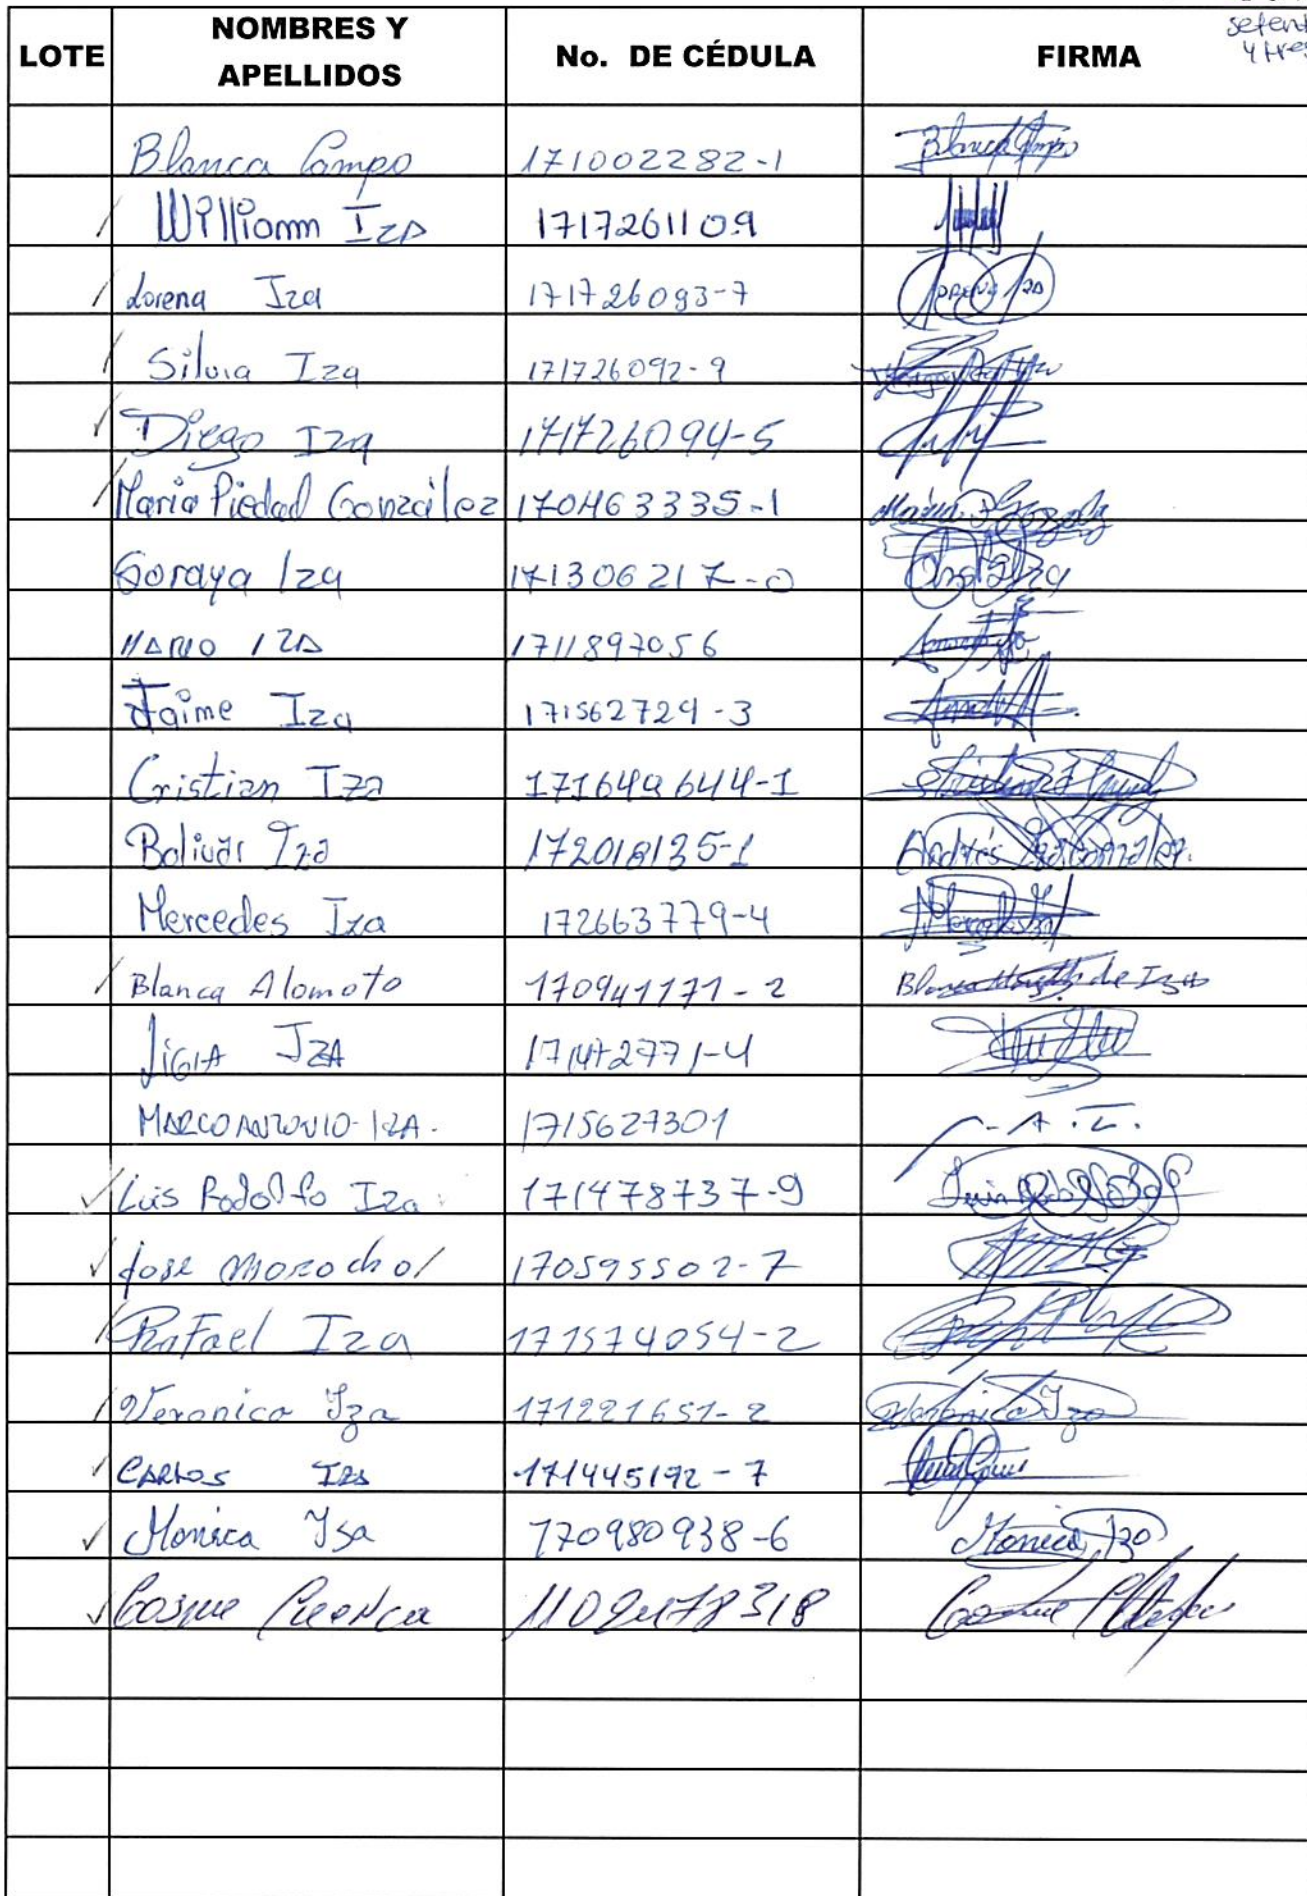 setent
y tres
LOTE NOMBRES Y APELLIDOS No. DE CÉDULA FIRMA
Blanca Campo 171002282-1 Blanca Campo
Williamm Iza 1717261109
Lorena Iza 171726093-7 Lorena Iza
Silvia Iza 171726092-9
Diego Iza 171726094-5
Maria Piedad González 170463335-1 Maria P Gozalz
Soraya Iza 171306217-0
MARIO IZA 1711897056
Jaime Iza 171562729-3
Cristian Iza 171649644-1
Bolivar Iza 172018135-1 Andrés Iza González.
Mercedes Iza 172663779-4 Mercedes Iza
Blanca Alomoto 170941171-2 Blanca de Iza
LIGIA IZA 171472771-4
MARCO ANTONIO-IZA. 1715627301 -A.I.
Luis Rodolfo Iza 171478737-9 Luis
Jose Morocho 170595502-7
Rafael Iza 171574054-2
Veronica Iza 171221651-2 Veronica Iza
CARLOS IZA 171445192-7
Monica Isa 170980938-6 Monica Izo
Cosme Cuenca 1102478318 Cosme